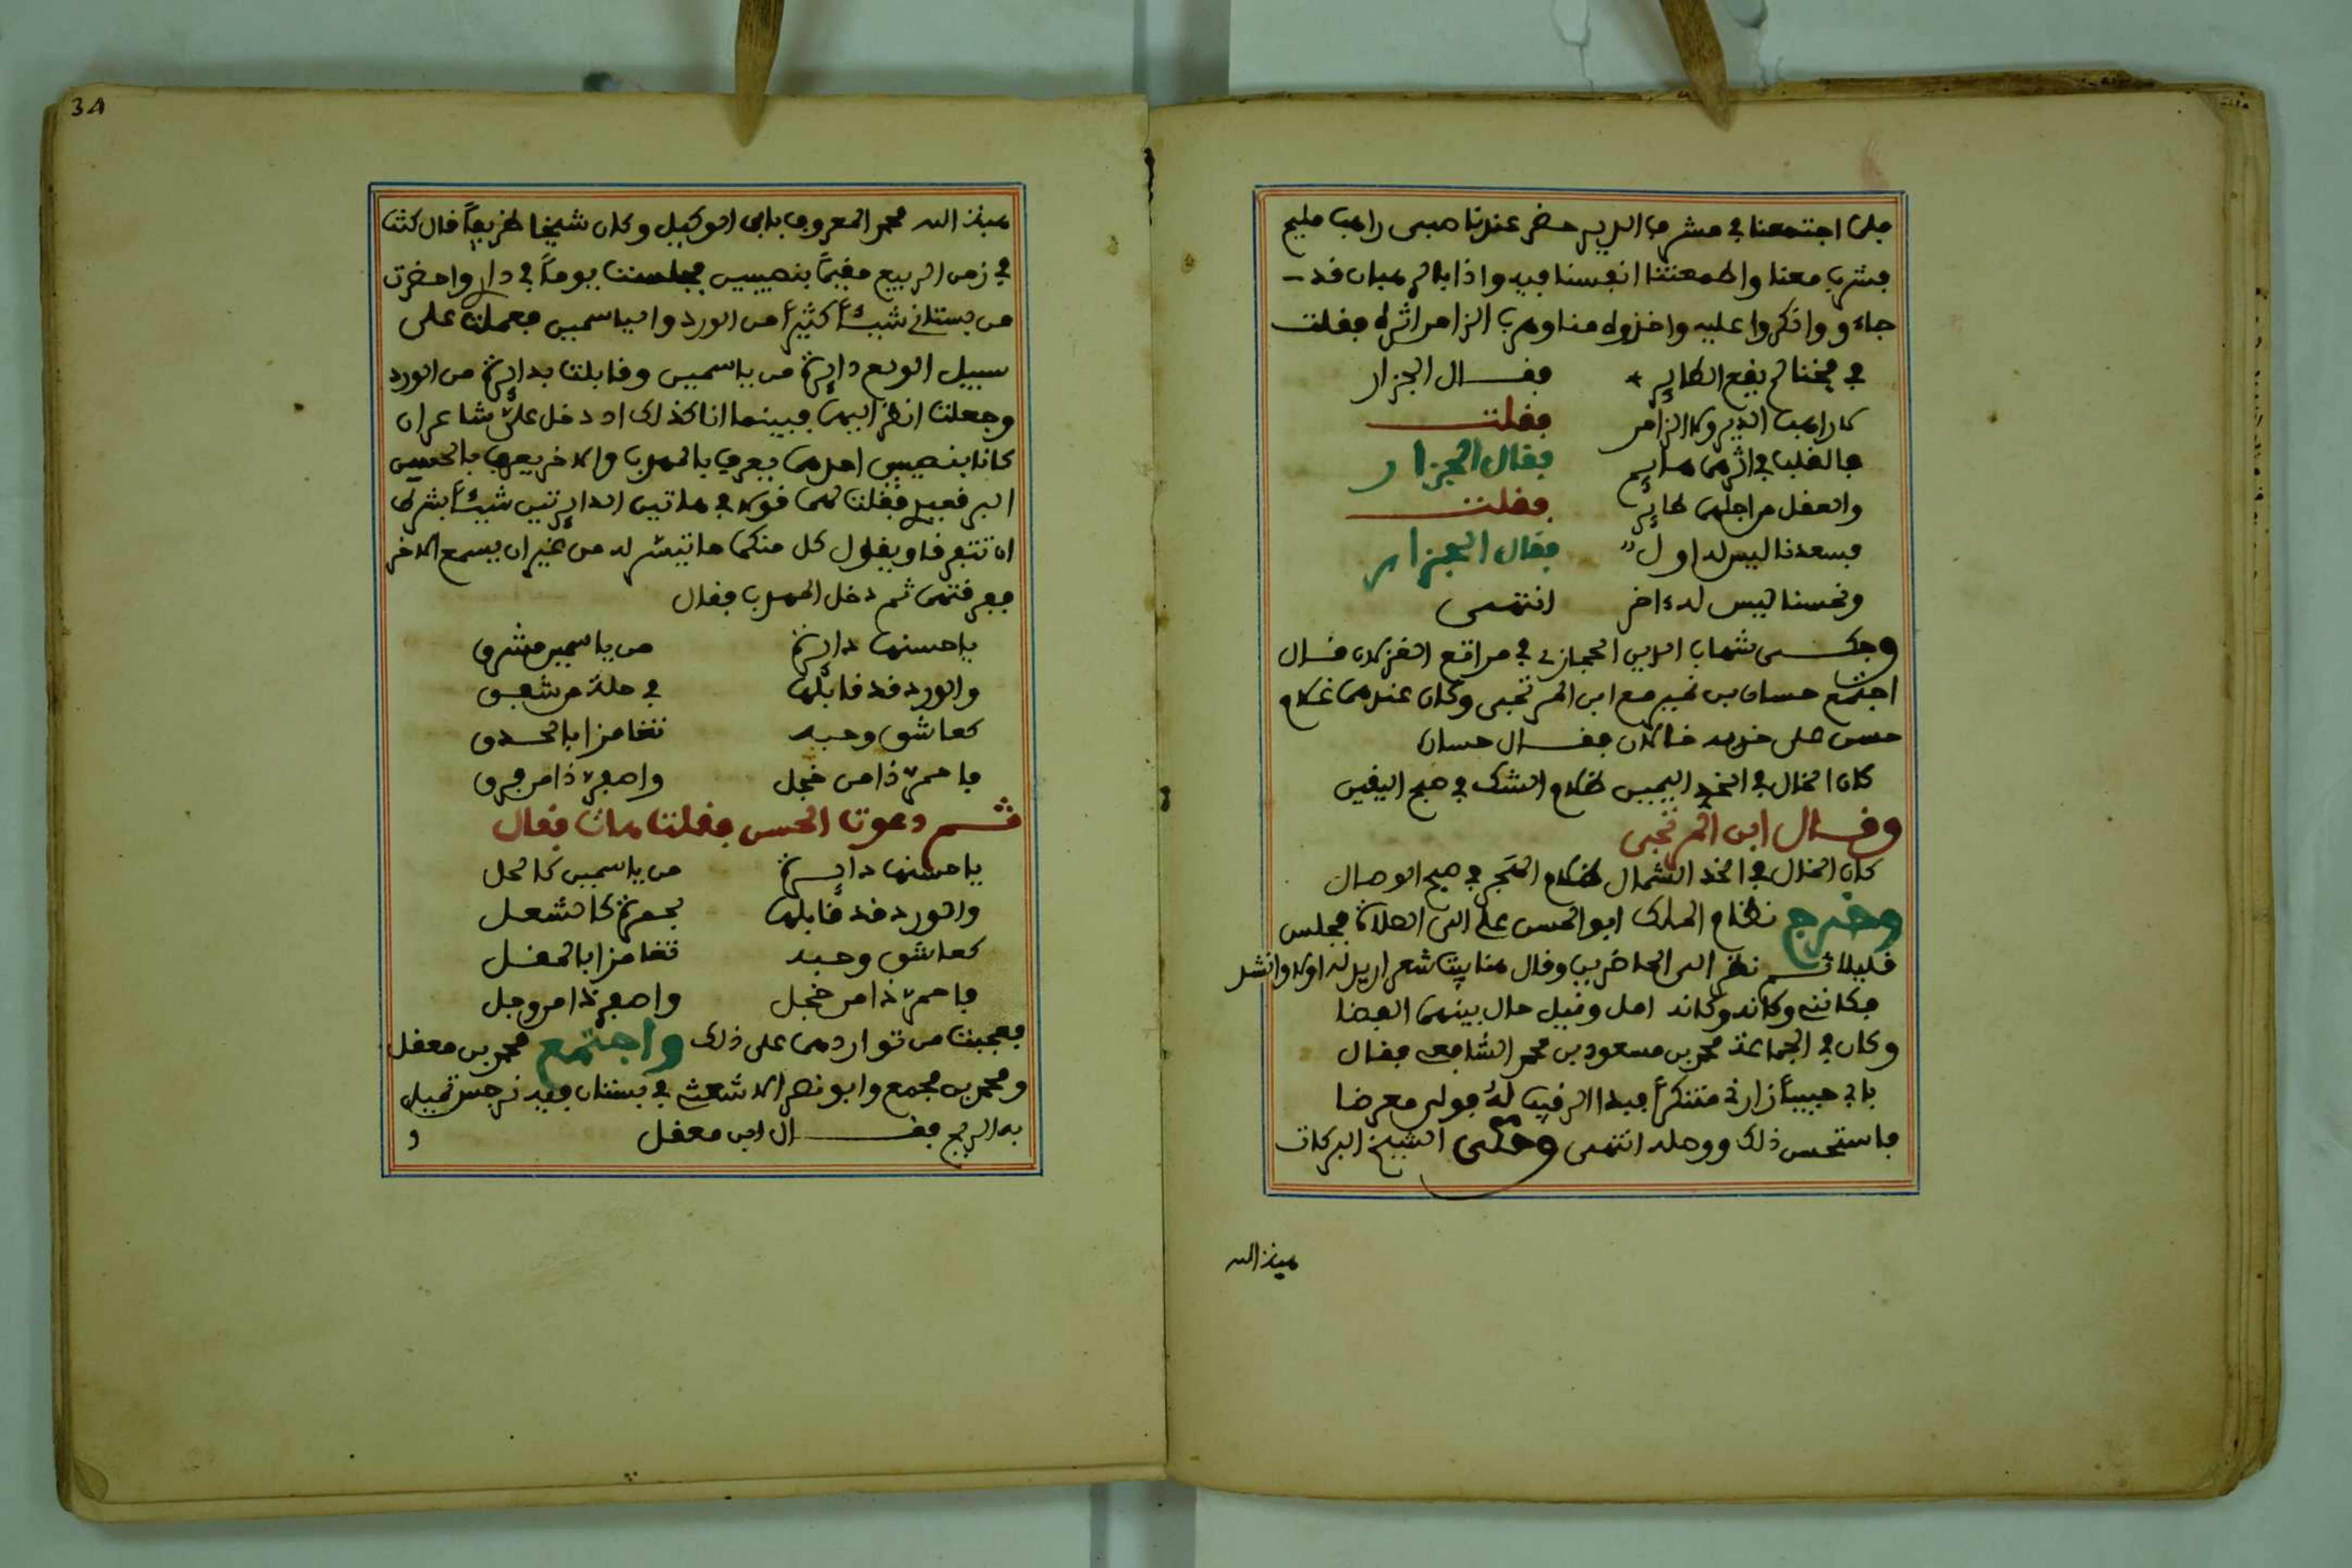 فلما اجتمعنا في مشرف الدير حضر عندنا صبى راهب مليح
فشرب معنا واطمعتنا انفسنا فيه واذا بالرهبان قد
جاءو وانكروا عليه واخذوه منا وهرب الزامر اثره فقلت
في فخنا لم يقع الطاير فقال الجزار
لا راهب الدير ولا الزامر فقلت
فالقلب في اثرهما هايم فقال الجزار
والعقل من اجلهما طاير فقلت
فسعدنا ليس له اول فقال الجزار
ونحسنا ليس له ءاخر انتهى
وحكى شهاب الدين الحجازى في مراتع الغزلان قال
اجتمع حسان بن نمير مع ابن المرتجى وكان عندهما غلام
حسن على خديه خالان فقال حسان
كان الخال في الخد اليمين ظلام الشك في صبح اليقين
وقال ابن المرتجى
كان الخال في الخد الشمال ظلام الهجر في صبح الوصال
وخرج نظام الملك ابو الحسن على الى الصلاة فجلس
قليلا ثم نظر الى الحاضرين وقال هنا بيت شعر اريد له اولا وانشد
فكاننى وكانه وكانه امل ونيل حال بينهما القضا
وكان في الجماعة محمد بن مسعود بن محمد الشافعى فقال
بابى حبيبا زارنى متنكرا فبدا الرقيب له فولى معرضا
فاستحسن ذلك ووصله انتهى وحكى الشيخ البركات
هبة الله
34
هبة الله محمد المعروف بابى الوكيل وكان شيخا ظريفا قال كنت
في زمن الربيع مقيما بنصيبين فجلست يوما في دار واحضرت
من بستانى شيئا كثيرا من الورد والياسمين فعملت على
سبيل الولع دايرة من ياسمين وقابلت بدايرة من الورد
وجعلت انظر اليهما فبينما انا كذلك اذ دخل على شاعران
كانا بنصيبين احدهما يعرف بالمهذب والاخر يعرف بالحسن
البرقعيدى فقلت لهما قولا في هاتين الدايرتين شيئا بشرط
ان تتفرقا ويقول كل منكما ما تيسر له من غير ان يسمع الاخر
ففرقتهما ثم دخل المهذب فقال
يا حسنها دايرة من ياسمين مشرق
والورد قد قابلها في حلة من شفق
كعاشق وحبه تغامزا بالحدق
فاحمر ذا من خجل واصفر ذا من فرق
ثم دعوت الحسن فقلت هات فقال
يا حسنها دايرة من ياسمين كالحلل
والورد قد قابلها بحمرة كالشعل
كعاشق وحبه تغامزا بالمقل
فاحمر ذا من خجل واصفر ذا من وجل
فعجبت من تواردهما على ذلك واجتمع محمد بن معقل
ومحمد بن مجمع وابو نصر الاشعث في بستان فيه نرجس تميل
به الريح فقال ابن معقل
و